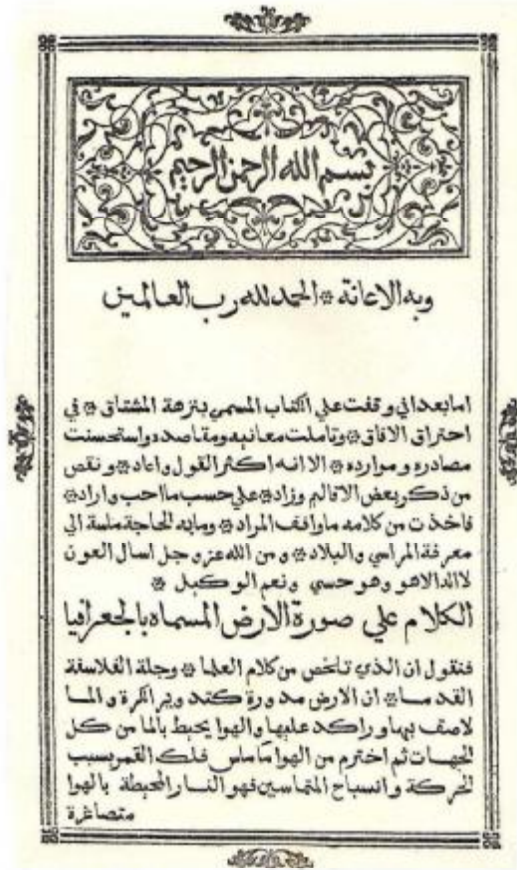 بسم الله الرحمن الرحيم
وبه الاعانة * الحمد لله رب العالمين
اما بعد اني وقفت علي الكتاب المسمي بنزهة المشتاق * في
احتراق الافاق * وتاملت معانيه ومقاصده واستحسنت
مصادره وموارده * الا انه اكثر القول واعاد * ونقص
من ذكر بعض الاقاليم وزاد * علي حسب ما احب واراد *
فاخذت من كلامه ما وافق المراد * وما به الحاجة ملسة الي
معرفة المراسي والبلاد * ومن الله عز وجل اسال العون
لا اله الا هو وهو حسبي ونعم الوكيل *
الكلام علي صورة الارض المسماه بالجعرافيا
فنقول ان الذي تلخص من كلام العلما * وجلة الفلاسفة
القدما * ان الارض مدورة كتدوير الكرة والما
لاصف بها وراكد عليها والهوا يحيط بالما من كل
الجهات ثم احترم من الهوا ما ماس فلك القمر بسبب
الحركة وانسباح المتماسين فهو النار المحيطة بالهوا
متصاغرة